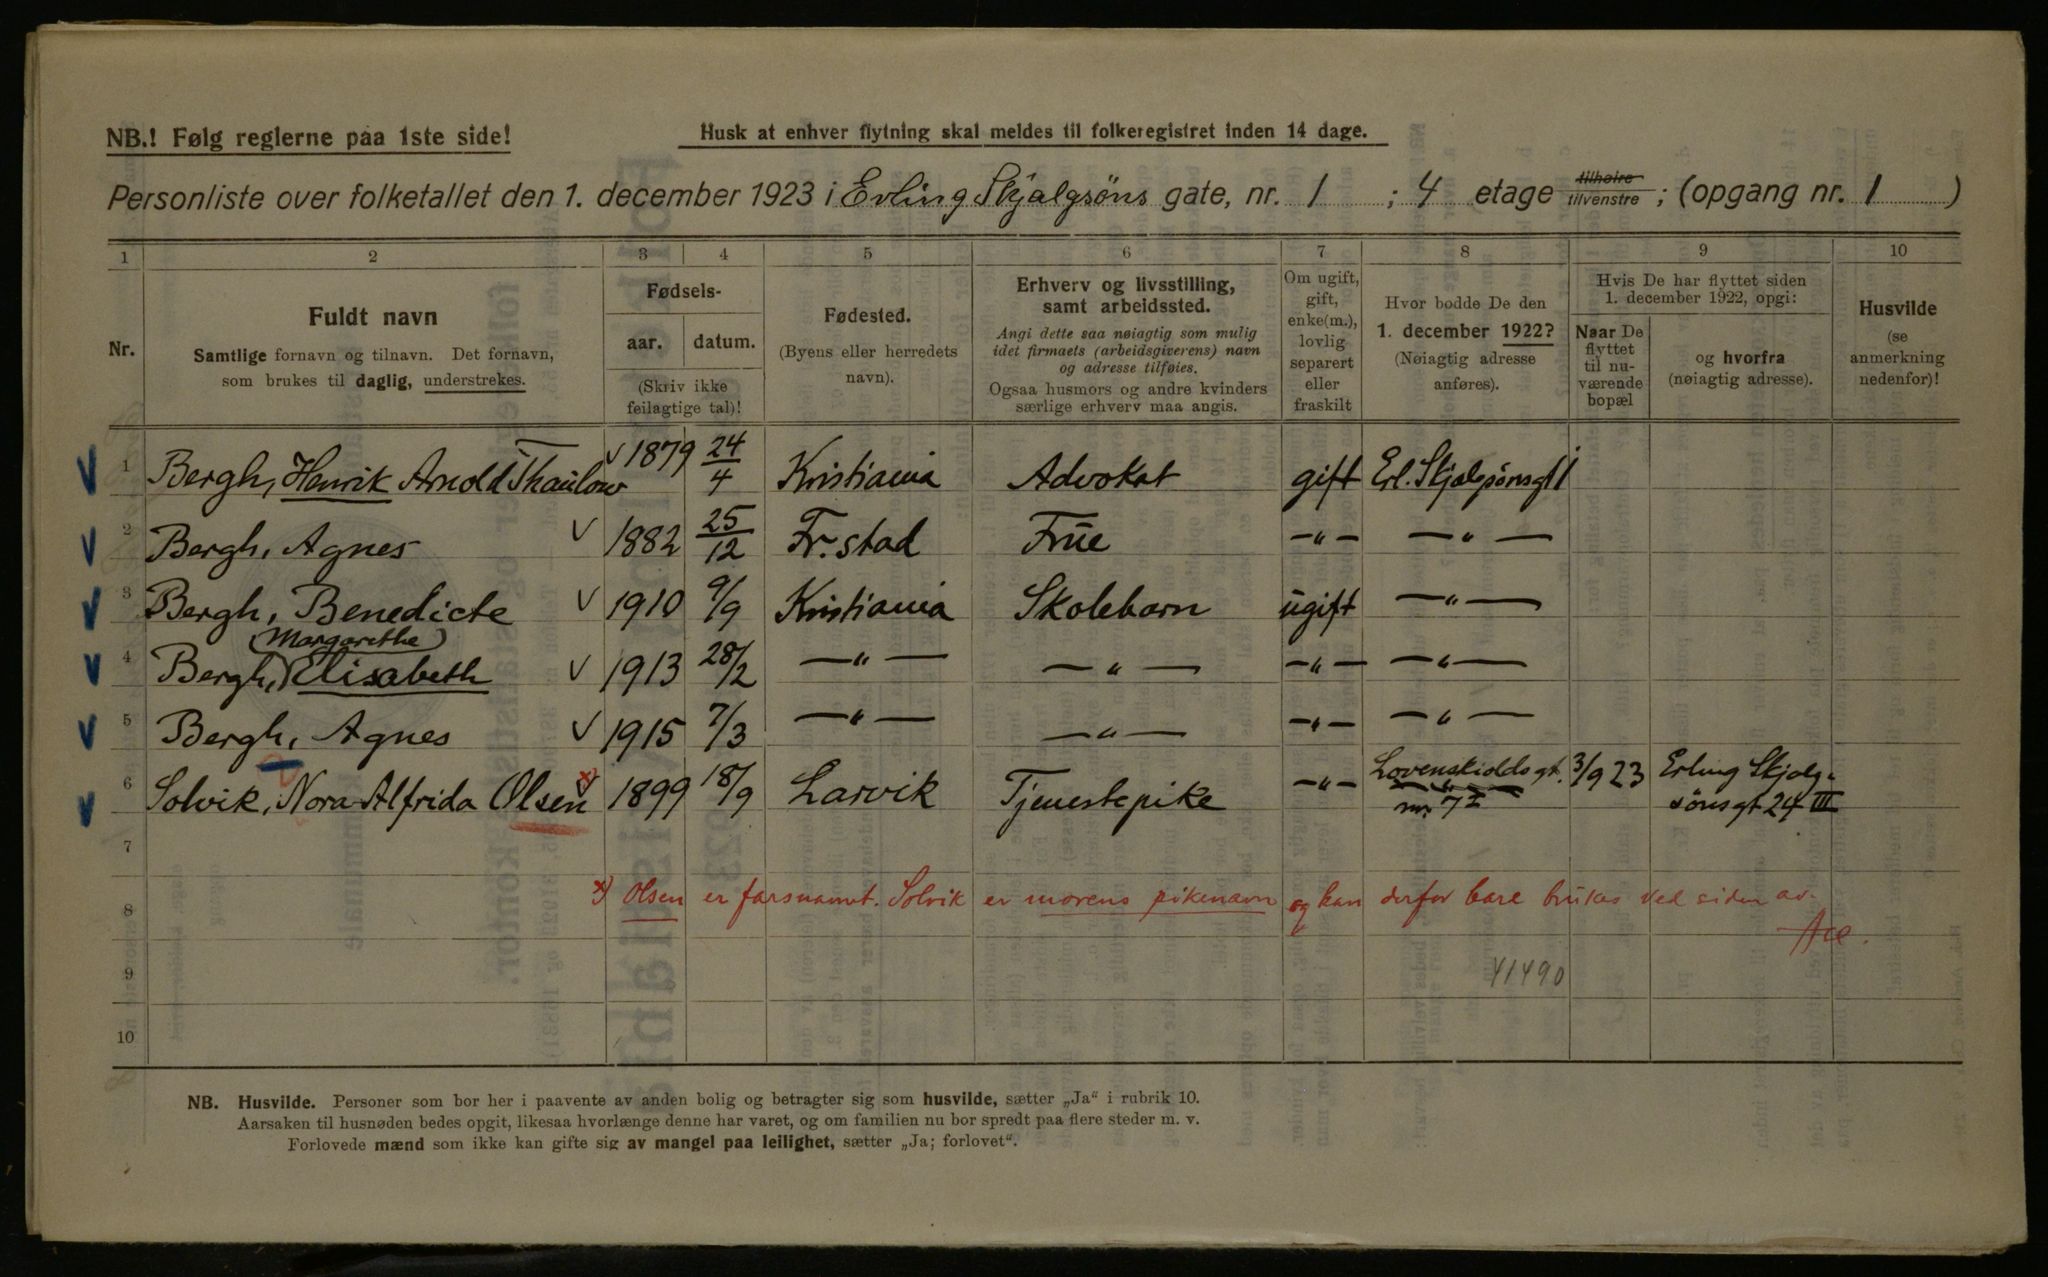 NB.! Følg reglerne paa 1ste side!
Husk at enhver flytning skal meldes til folkeregistret inden 14 dage.
Personliste over folketallet den 1. december 1923 i Erling Skjalgsöns gate, nr. 1 ; 4 etage tilhøire tilvenstre ; (opgang nr. 1 )
1 2 3 4 5 6 7 8 9 10
Nr.
Fuldt navn
Samtlige fornavn og tilnavn. Det fornavn,
som brukes til daglig, understrekes.
Fødsels-
aar. datum.
(Skriv ikke
feilagtige tal)!
Fødested.
(Byens eller herredets
navn).
Erhverv og livsstilling,
samt arbeidssted.
Angi dette saa nøiagtig som mulig
idet firmaets (arbeidsgiverens) navn
og adresse tilføies.
Ogsaa husmors og andre kvinders
særlige erhverv maa angis.
Om ugift,
gift,
enke(m.),
lovlig
separert
eller
fraskilt
Hvor bodde De den
1. december 1922?
(Nøiagtig adresse
anføres).
Hvis De har flyttet siden
1. december 1922, opgi:
Naar De
flyttet
til nu-
værende
bopæl
og hvorfra
(nøiagtig adresse).
Husvilde
(se
anmerkning
nedenfor)!
1 Bergh, Henrik Arnold Thaulow v 1879 24/4 Kristiania Advokat gift Erl. Skjalgsönsgt 1
2 Bergh, Agnes v 1882 25/12 Fr.stad Frue —"— —"—
3 Bergh, Benedicte v 1910 9/9 Kristiania Skolebarn ugift —"—
(Margarethe)
4 Bergh, Elisabeth v 1913 28/2 —"— —"— —"— —"—
5 Bergh, Agnes v 1915 7/3 —"— —"— —"— —"—
6 Solvik, Nora Alfrida Olsen x) 1899 18/9 Larvik Tjenestepike —"— Lovenskioldsgt. 3/9 23 Erling Skjalg-
nr. 7 I sönsgt 24 III
7
8 x) Olsen er farsnavnet. Solvik er morens pikenavn og kan derfor bare brukes ved siden av.
9 41490
10
NB. Husvilde. Personer som bor her i paavente av anden bolig og betragter sig som husvilde, sætter „Ja" i rubrik 10.
Aarsaken til husnøden bedes opgit, likesaa hvorlænge denne har varet, og om familien nu bor spredt paa flere steder m. v.
Forlovede mænd som ikke kan gifte sig av mangel paa leilighet, sætter „Ja; forlovet".